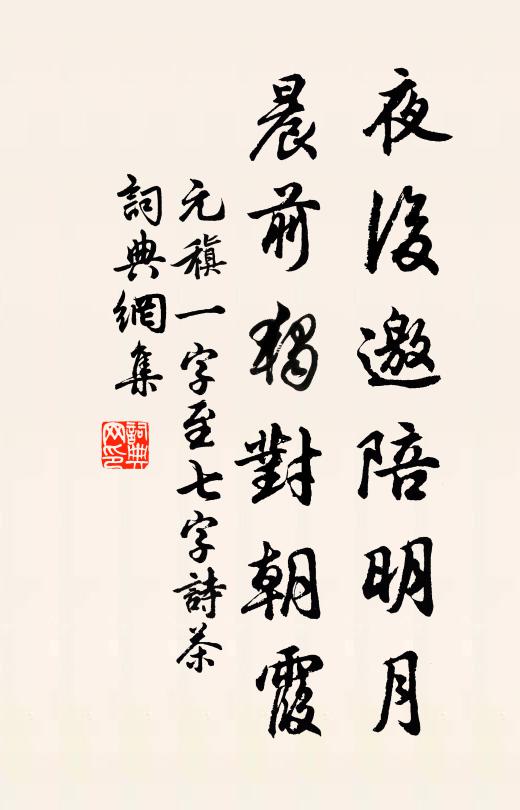 夜後邀陪明月
晨前獨對朝霞
元稹一字至七字詩茶
詞典網集
詞典網印